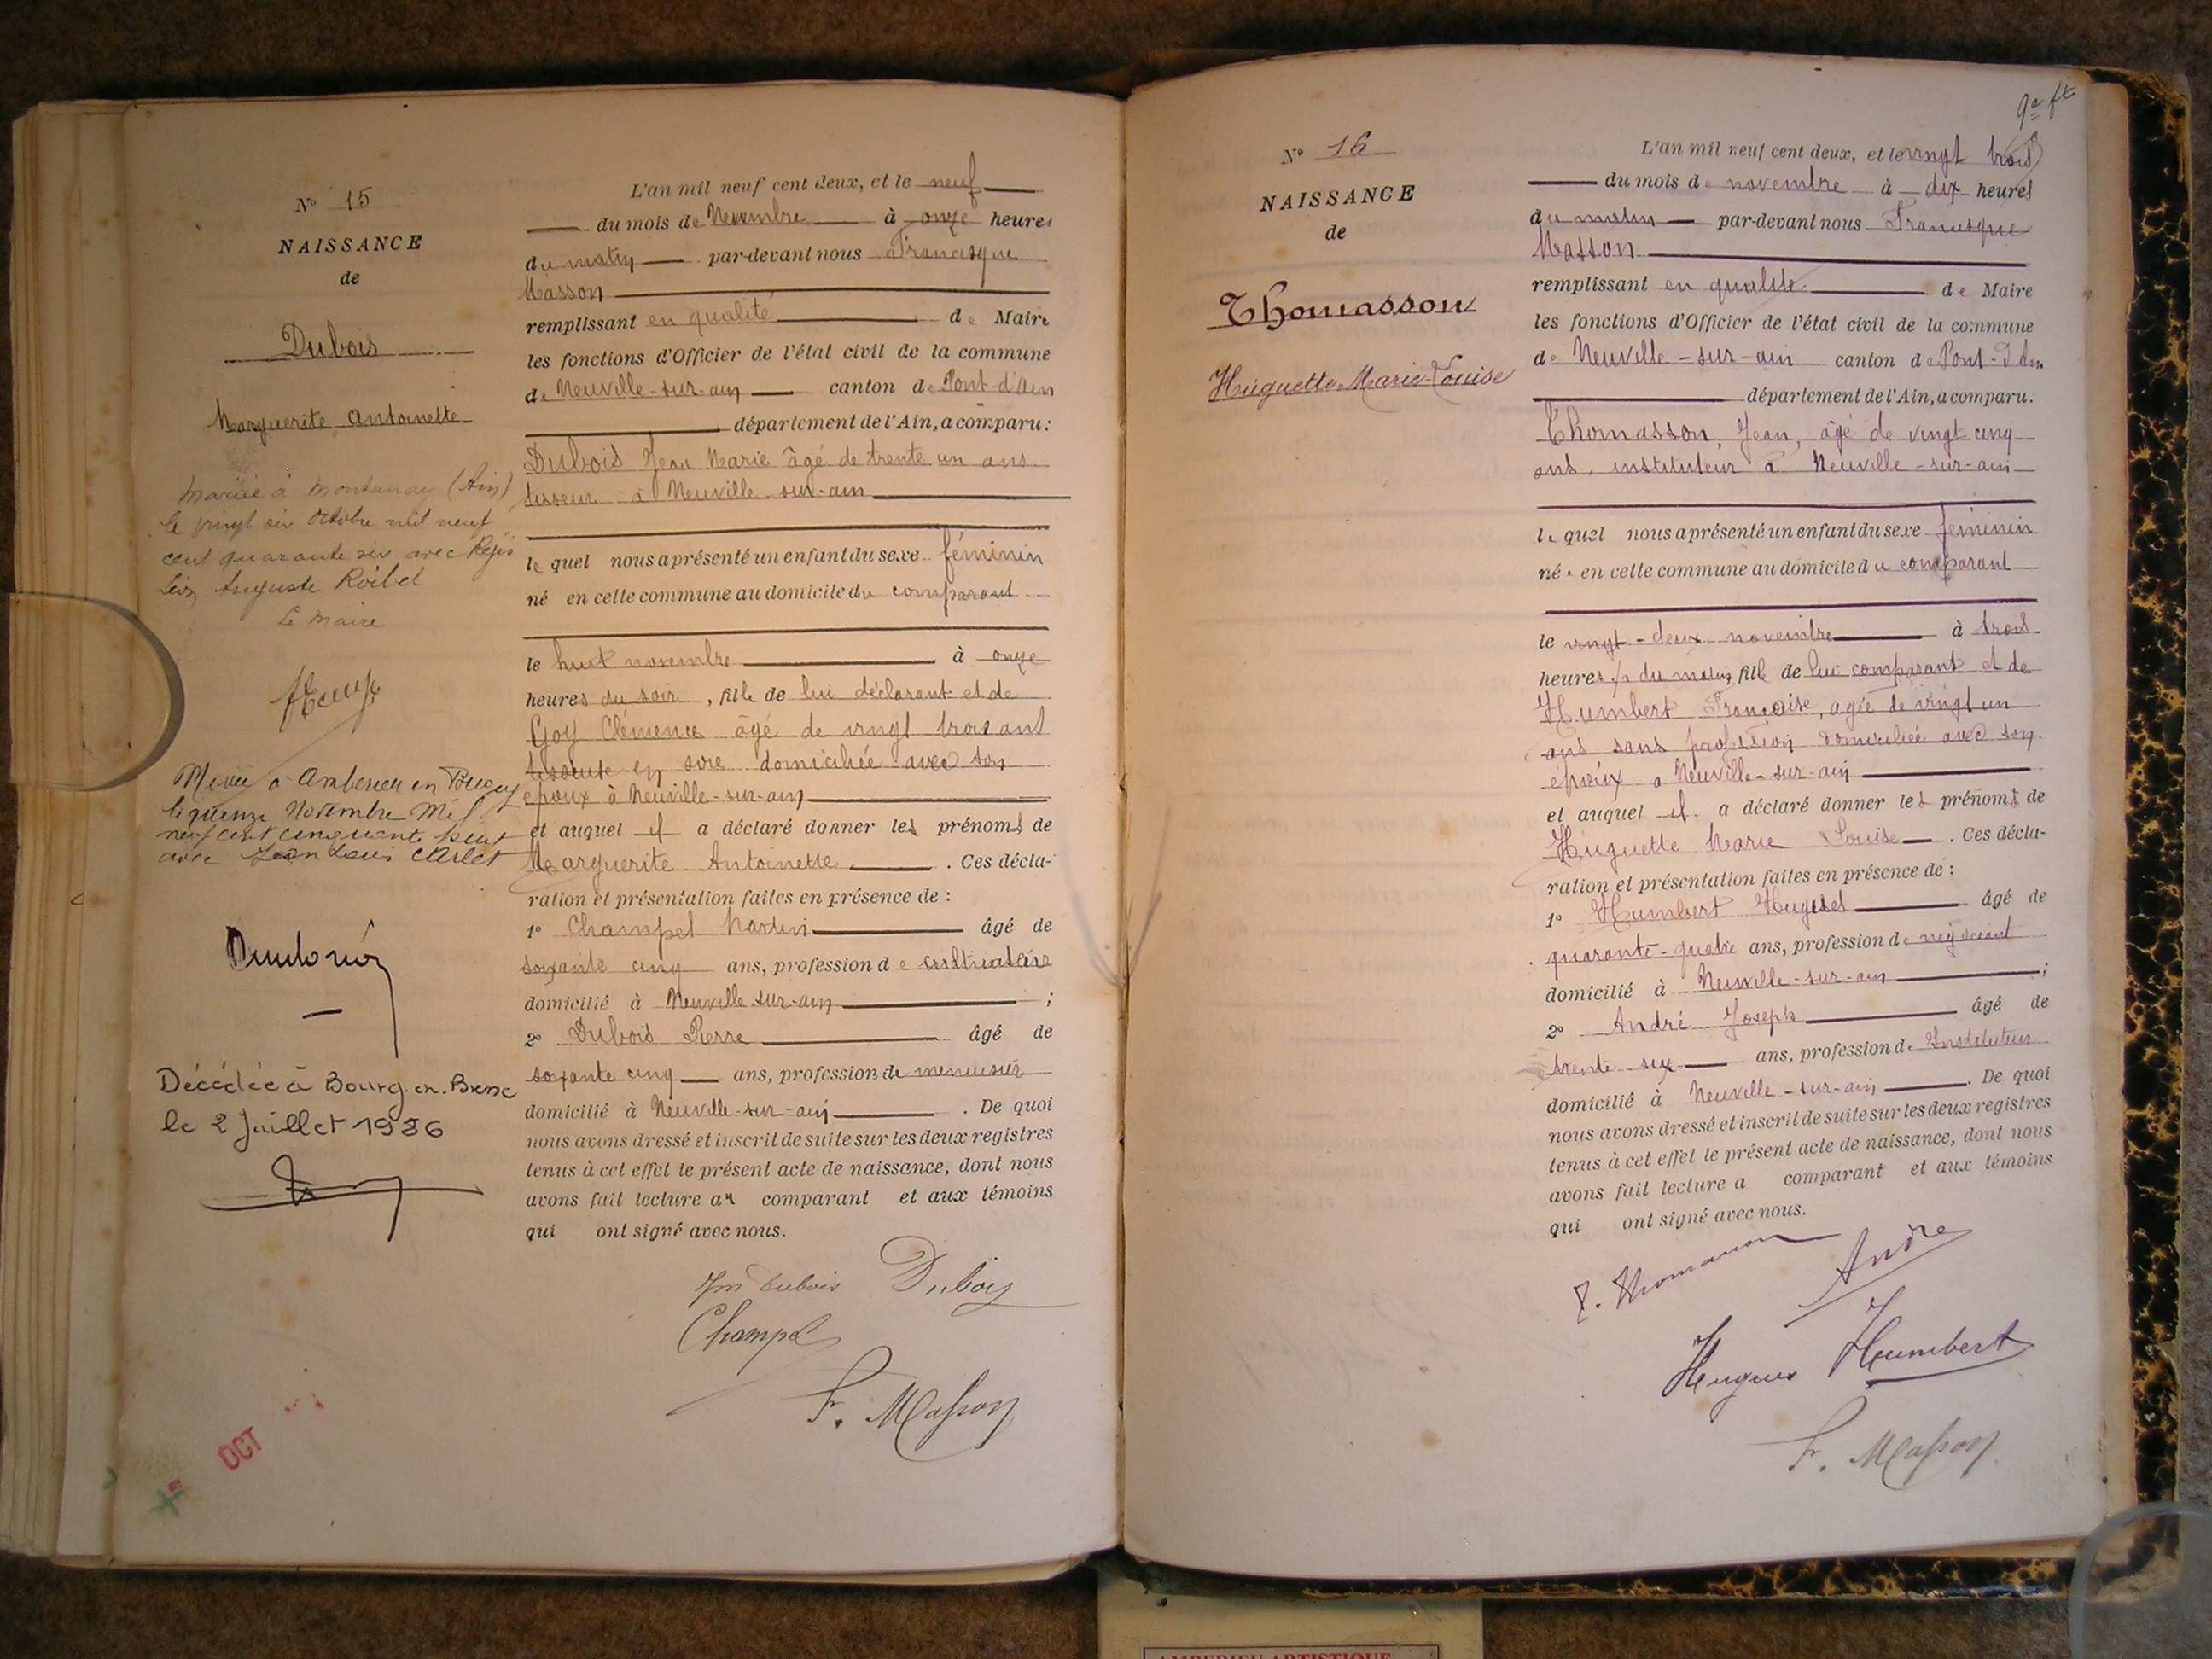 N° 15
NAISSANCE
de
Dubois
Marguerite Antoinette
Mariée à Montanay (Ain)
le vingt six Octobre mil neuf
cent quarante six avec Régis
Léon Auguste Roibet
Le Maire
Mariée à Ambérieu en Bugey
le quinze Novembre Mil
neuf cent cinquante
avec Jean Louis
Décédée à Bourg-en-Bresse
le 2 Juillet 1986
OCT
L'an mil neuf cent deux, et le neuf
du mois de Novembre à onze heures
du matin par-devant nous Francisque
Masson
remplissant en qualité de Maire
les fonctions d'Officier de l'état civil de la commune
de Neuville-sur-ain canton de Pont-d'Ain
département de l'Ain, a comparu:
Dubois Jean Marie âgé de trente un ans
tisseur à Neuville-sur-ain
le quel nous a présenté un enfant du sexe féminin
né en cette commune au domicile du comparant
le huit novembre à onze
heures du soir, fille de lui déclarant et de
Goy Clémence âgé de vingt trois ans
tisseuse en soie domiciliée avec son
époux à Neuville-sur-ain
et auquel il a déclaré donner les prénoms de
Marguerite Antoinette. Ces décla-
ration et présentation faites en présence de:
1° Champel Martin âgé de
soixante cinq ans, profession de cultivateur
domicilié à Neuville-sur-ain;
2° Dubois Pierre âgé de
soixante cinq ans, profession de menuisier
domicilié à Neuville-sur-ain. De quoi
nous avons dressé et inscrit de suite sur les deux registres
tenus à cet effet le présent acte de naissance, dont nous
avons fait lecture au comparant et aux témoins
qui ont signé avec nous.
Jm Dubois Dubois
Champel
F. Masson
9e ft
N° 16
NAISSANCE
de
Thomasson
Huguette Marie-Louise
L'an mil neuf cent deux, et le vingt trois
du mois de novembre à dix heures
du matin par-devant nous Francisque
Masson
remplissant en qualité de Maire
les fonctions d'Officier de l'état civil de la commune
de Neuville-sur-ain canton de Pont-d'Ain
département de l'Ain, a comparu.
Thomasson, Jean, âgé de vingt cinq
ans, instituteur à Neuville-sur-ain
le quel nous a présenté un enfant du sexe féminin
né en cette commune au domicile du comparant
le vingt-deux novembre à trois
heures du matin, fille de lui comparant et de
Humbert Françoise, agée de vingt un
ans sans profession domiciliée avec son
époux à Neuville-sur-ain
et auquel il a déclaré donner les prénoms de
Huguette Marie Louise. Ces décla-
ration et présentation faites en présence de:
1° Humbert Hugues âgé de
quarante-quatre ans, profession de négociant
domicilié à Neuville-sur-ain;
2° André Joseph âgé de
trente-six ans, profession d'Instituteur
domicilié à Neuville-sur-ain. De quoi
nous avons dressé et inscrit de suite sur les deux registres
tenus à cet effet le présent acte de naissance, dont nous
avons fait lecture a comparant et aux témoins
qui ont signé avec nous.
J. Thomasson André
Hugues Humbert
F. Masson
AMBERIEU ARTISTIQUE